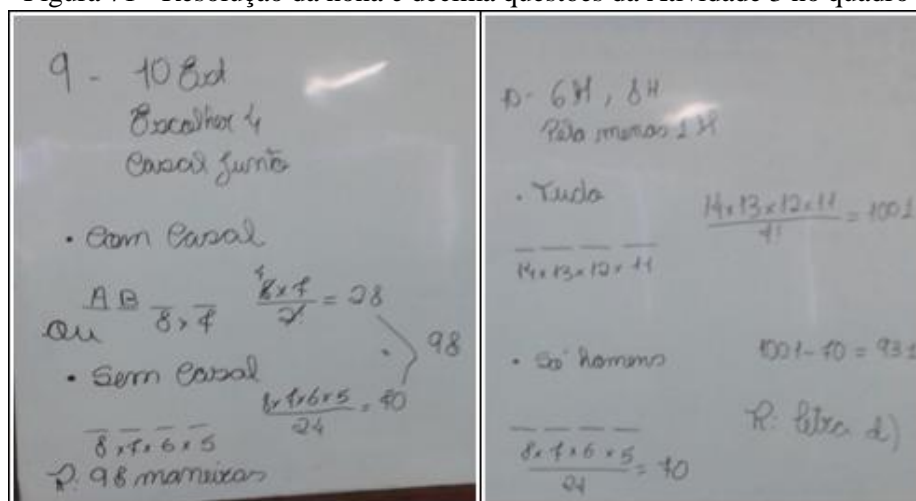 Figura 71 - Resolução da nona e décima questões da Atividade 3 no quadro
9 - 10 Ed
Escolher 4
Casal junto
• Com Casal
A B 8 x 7 8x7/2 = 28
ou
• Sem Casal 98
8 x 7 x 6 x 5 8x7x6x5/24 = 70
R. 98 maneiras
10- 6M, 8H
Pelo menos 1 M
• Tudo
14 x 13 x 12 x 11 14x13x12x11/4! = 1001
• Só homens 1001-70 = 931
8 x 7 x 6 x 5/24 = 70
R: letra d)